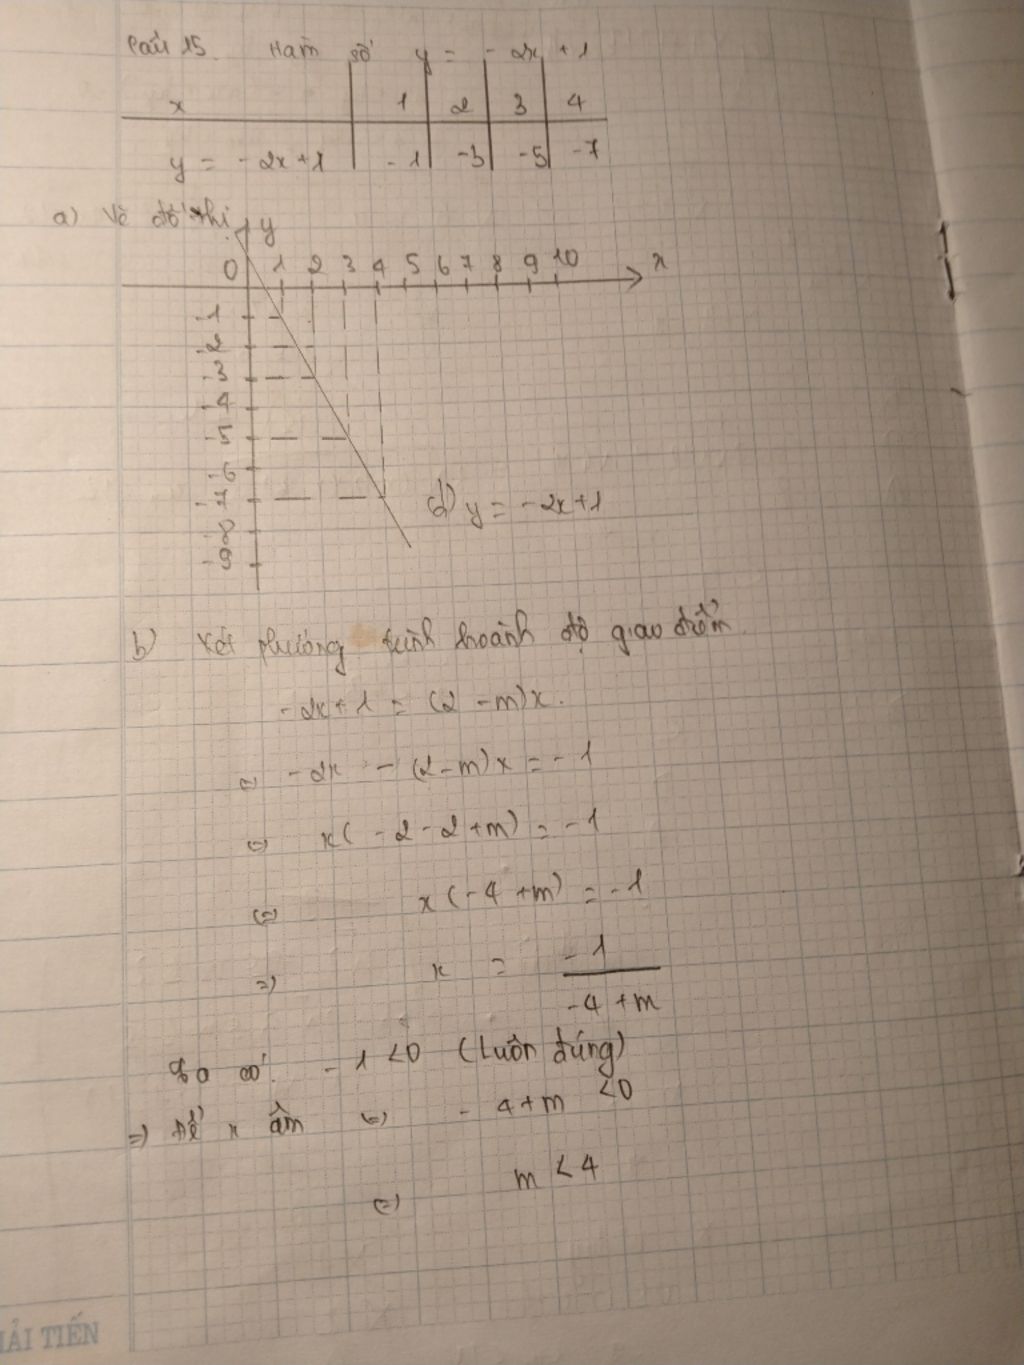 Câu 15. Hàm số y = -2x + 1
x 1 2 3 4
y = -2x+1 -1 -3 -5 -7
a) Vẽ đồ thị
y
0 1 2 3 4 5 6 7 8 9 10 x
-1
-2
-3
-4
-5
-6
-7
-8
-9
(d) y = -2x+1
b) Xét phương trình hoành độ giao điểm.
-2x+1 = (2-m)x.
⇔ -2x - (2-m)x = -1
⇔ x(-2-2+m) = -1
⇔ x(-4+m) = -1
⇒ x = -1
-4+m
Ta có: -1 <0 (Luôn đúng)
⇒ Để x âm ⇔ -4+m <0
⇔ m <4
HẢI TIẾN